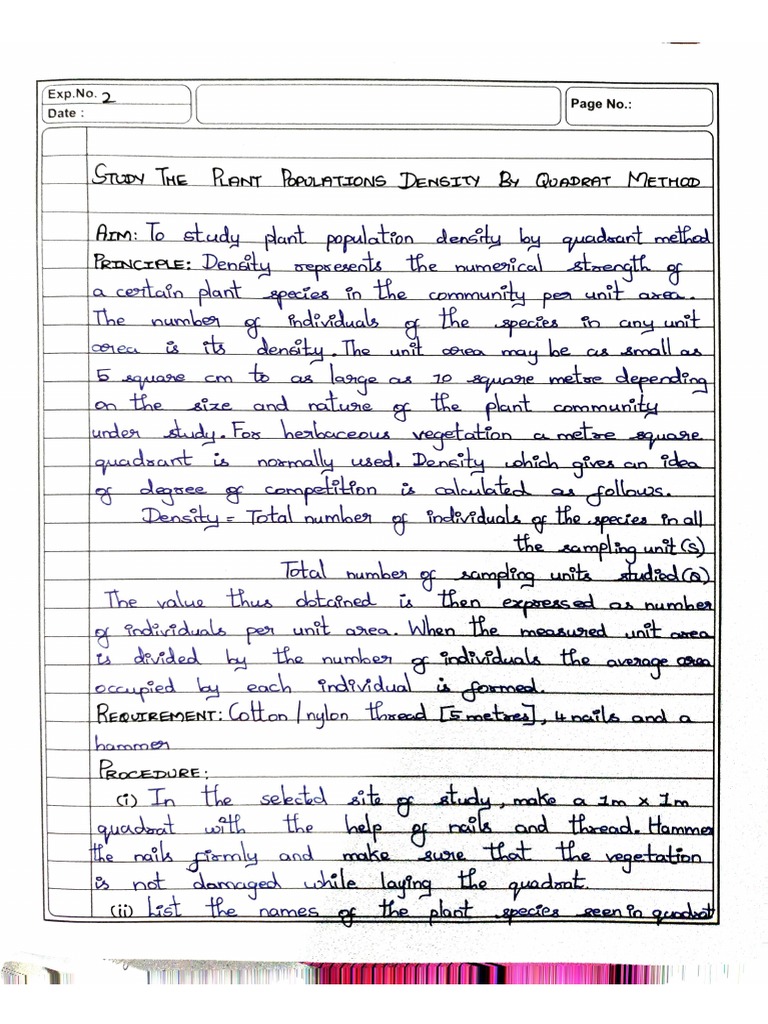 Exp.No. 2
Date :
Page No.:
STUDY THE PLANT POPULATIONS DENSITY BY QUADRAT METHOD
AIM: To study plant population density by quadrant method
PRINCIPLE: Density represents the numerical strength of
a certain plant species in the community per unit area.
The number of individuals of the species in any unit
area is its density. The unit area may be as small as
5 square cm to as large as 10 square metre depending
on the size and nature of the plant community
under study. For herbaceous vegetation a metre square
quadrant is normally used. Density which gives an idea
of degree of competition is calculated as follows.
Density = Total number of individuals of the species in all
the sampling unit (S)
Total number of sampling units studied (Q)
The value thus obtained is then expressed as number
of individuals per unit area. When the measured unit area
is divided by the number of individuals the average area
occupied by each individual is formed.
REQUIREMENT: Cotton / nylon thread [5 metres], 4 nails and a
hammer
PROCEDURE:
(i) In the selected site of study, make a 1m x 1m
quadrat with the help of nails and thread. Hammer
the nails firmly and make sure that the vegetation
is not damaged while laying the quadrat.
(ii) List the names of the plant species seen in quadrat